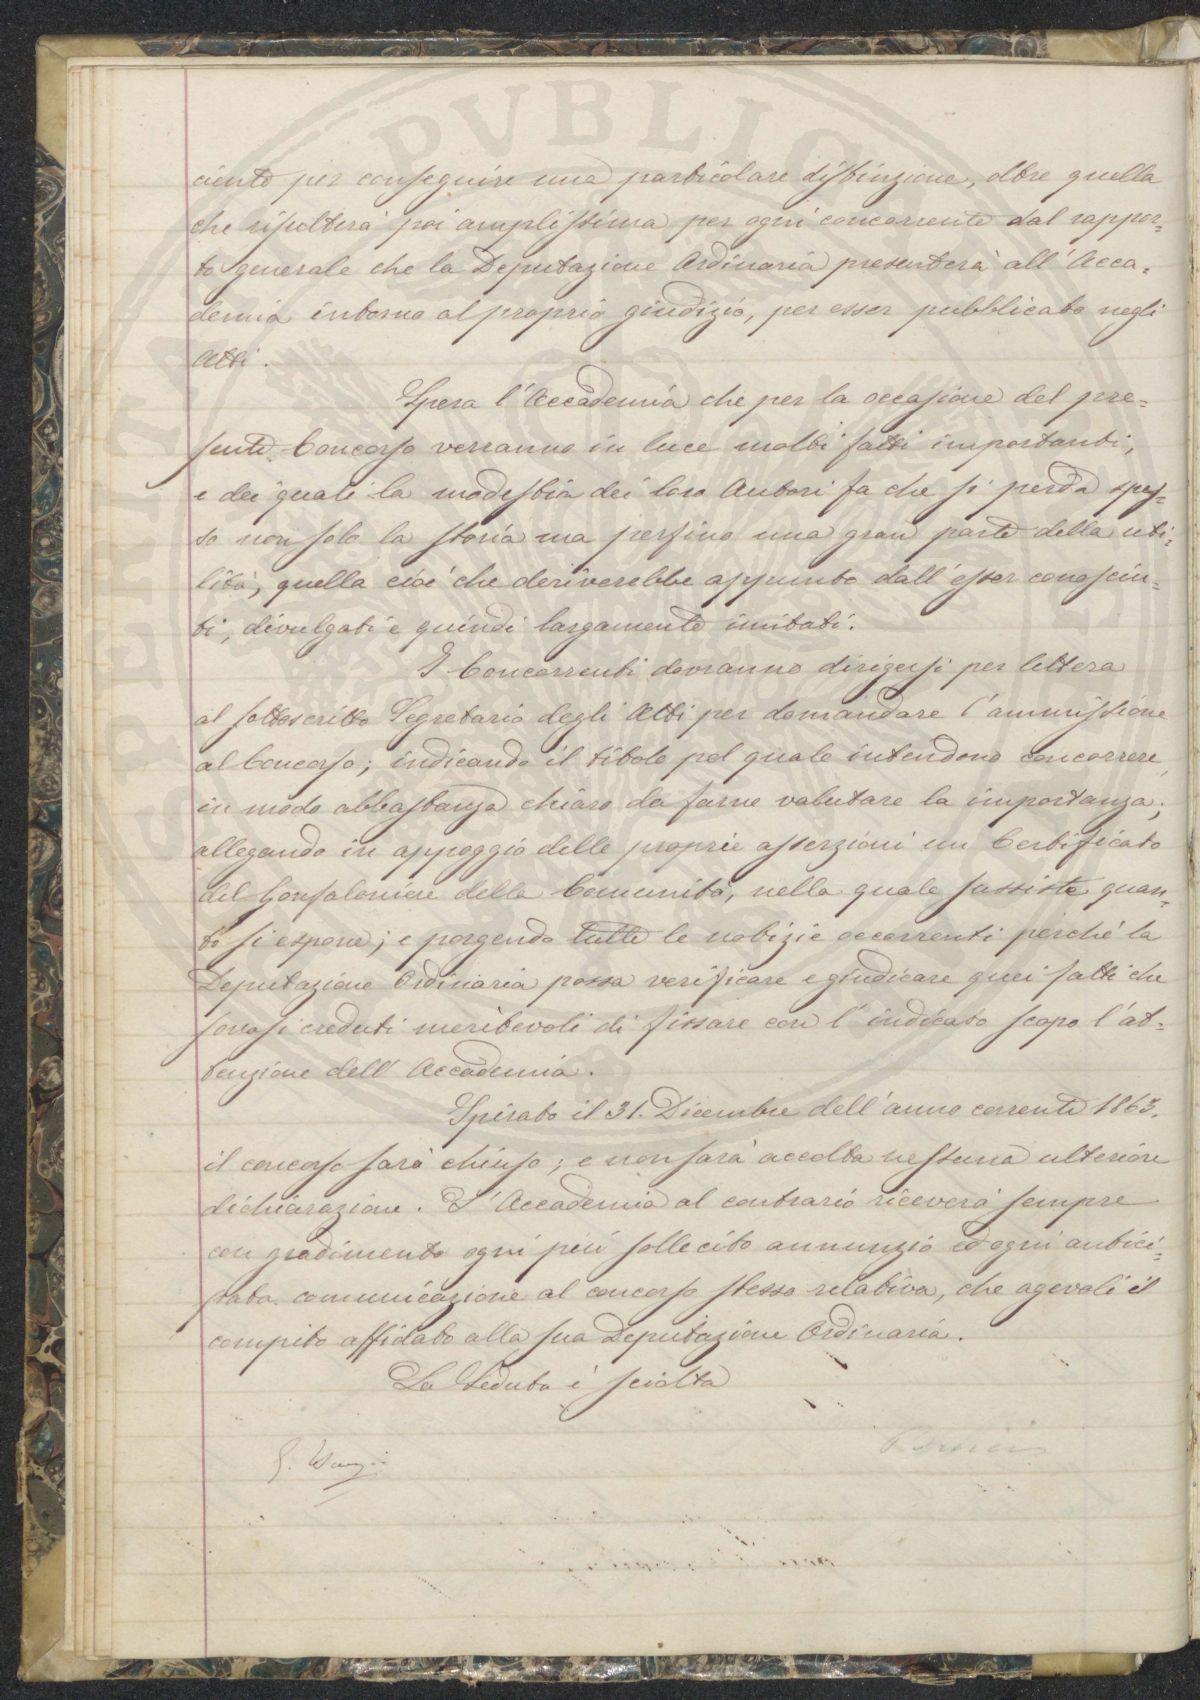 ciente per conseguire una particolare distinzione, oltre quella
che risulterà poi amplissima per ogni concorrente dal rappor=
to generale che la Deputazione Ordinaria presenterà all'Acca=
demia intorno al proprio giudizio, per esser pubblicato negli
Atti.
Spera l'Accademia che per la occasione del pre=
sente Concorso verranno in luce molti fatti importanti,
e dei quali la modestia dei loro Autori fa che si perda spes=
so non solo la storia ma perfino una gran parte della uti=
lità, quella cioè che deriverebbe appunto dall'esser conosciu=
ti, divulgati e quindi largamente imitati.
I Concorrenti dovranno dirigersi per lettera
al sottoscritto Segretario degli Atti per domandare l'ammissione
al Concorso; indicando il titolo pel quale intendono concorrere,
in modo abbastanza chiaro da farne valutare la importanza;
allegando in appoggio delle proprie asserzioni un Certificato
del Gonfaloniere della Comunità, nella quale sussiste quan=
to si espone; e porgendo tutte le notizie occorrenti perché la
Deputazione Ordinaria possa verificare e giudicare quei fatti che
sonosi creduti meritevoli di fissare con l'indicato scopo l'at=
tenzione dell'Accademia.
Spirato il 31. Dicembre dell'anno corrente 1863.
il concorso sarà chiuso; e non sarà accolta nessuna ulteriore
dichiarazione. L'Accademia al contrario riceverà sempre
con gradimento ogni più sollecito annunzio ed ogni antici=
pata comunicazione al concorso stesso relativa, che agevoli il
compito affidato alla sua Deputazione Ordinaria.
La Seduta è sciolta
PVBLICA